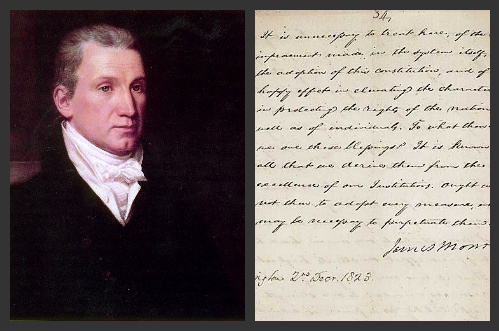 34,
It is unnecessary to treat here, of the
improvement made in the system itself,
the adoption of this constitution, and of
happy effect in elevating the character
in protecting the rights of the nation
well as of individuals. To what then
we owe these blessings? It is known
all that we derive them from the
excellence of our Institutions. Ought
not then to adopt every measure,
may be necessary to perpetuate them.
James Monr
ngton 2nd Decr. 1823.